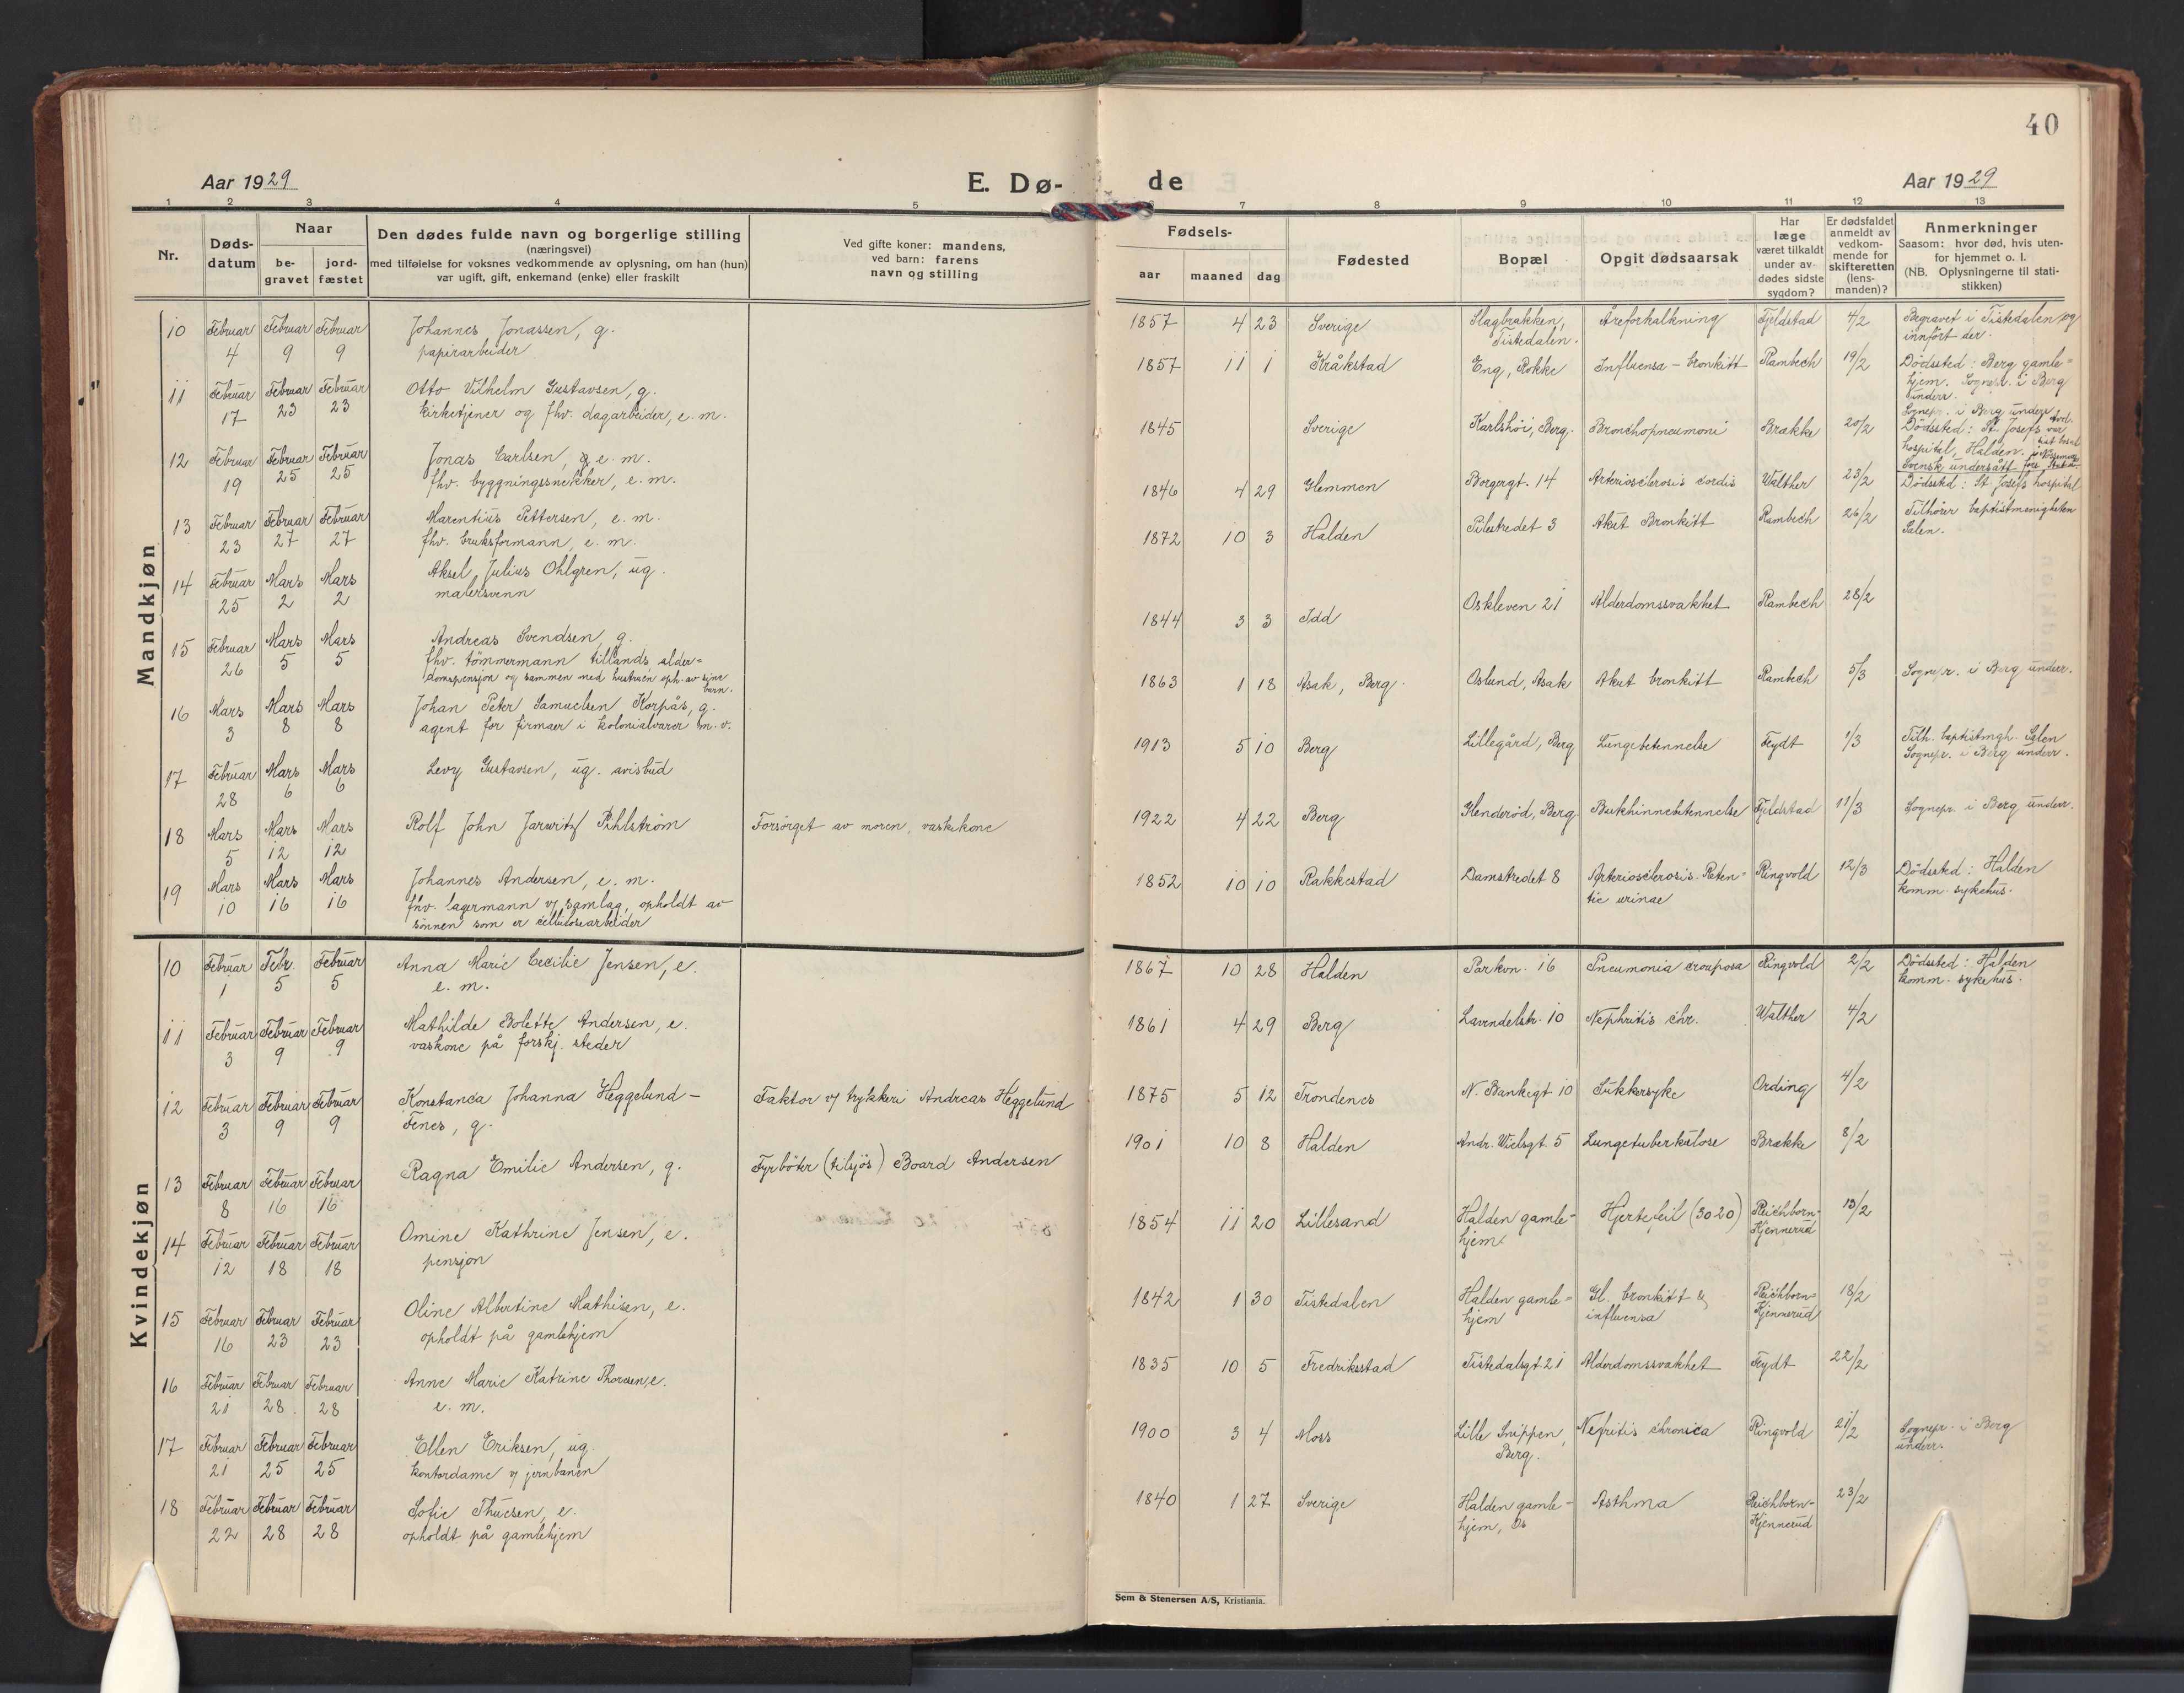 40
Aar 1929
E. Dø-
de
Aar 1929
1 2 3 4 5 7 8 9 10 11 12 13
Nr.
Døds-
datum
Naar
be-
gravet
jord-
fæstet
Den dødes fulde navn og borgerlige stilling
(næringsvei)
med tilføielse for voksnes vedkommende av oplysning, om han (hun)
var ugift, gift, enkemand (enke) eller fraskilt
Ved gifte koner: mandens,
ved barn: farens
navn og stilling
Fødsels-
aar maaned dag
Fødested
Bopæl
Opgit dødsaarsak
Har
læge
været tilkaldt
under av-
dødes sidste
sygdom?
Er dødsfaldet
anmeldt av
vedkom-
mende for
skifteretten
(lens-
manden)?
Anmerkninger
Saasom: hvor død, hvis uten-
for hjemmet o. l.
(NB. Oplysningerne til stati-
stikken)
Mandkjøn
10 Februar Februar Februar Johannes Jonassen, g.
4 9 9 papirarbeider
11 Februar Februar Februar Otto Vilhelm Gustavsen, g.
17 23 23 kirketjener og fhv. dagarbeider, e. m.
12 Februar Februar Februar Jonas Carlsen, e. m.
19 25 25 fhv. byggningssnekker, e. m.
13 Februar Februar Februar Marentius Pettersen, e. m.
23 27 27 fhv. bruksformann, e. m.
14 Februar Mars Mars Aksel Julius Ohlgren, ug.
25 2 2 malersvenn
15 Februar Mars Mars Andreas Svendsen, g.
26 5 5 fhv. tömmermann tillands, alder=
domspensjon og sammen med hustruen oph. av sine
barn.
16 Mars Mars Mars Johan Peter Samuelsen Korpås, g.
3 8 8 agent for firmaer i kolonialvarer m. v.
17 Februar Mars Mars Levy Gustavsen, ug. avisbud
28 6 6
18 Mars Mars Mars Rolf John Jarwitz Pihlström Forsörget av moren, vaskekone
5 12 12
19 Mars Mars Mars Johannes Andersen, e. m.
10 16 16 fhv. lagermann v/ samlag, opholdt av
sönnen som er cellulosearbeider
Kvindekjøn
10 Februar Febr. Februar Anna Marie Cecilie Jensen, e.
1 5 5 e. m.
11 Februar Februar Februar Mathilde Bolette Andersen, e.
3 9 9 vaskone på forskj. steder
12 Februar Februar Februar Konstanca Johanna Heggelund- Faktor v/ trykkeri Andreas Heggelund
3 9 9 Fenes, g.
13 Februar Februar Februar Ragna Emilie Andersen, g. Fyrböter (tilsjös) Board Andersen
8 16 16
14 Februar Februar Februar Omine Kathrine Jensen, e.
12 18 18 pensjon
15 Februar Februar Februar Oline Albertine Mathisen, e.
16 23 23 opholdt på gamlehjem
16 Februar Februar Februar Anne Marie Katrine Thoresen, e.
21 28 28 e. m.
17 Februar Februar Februar Ellen Eriksen, ug.
21 25 25 kontordame v/ jernbanen
18 Februar Februar Februar Sofie Thuesen, e.
22 28 28 opholdt på gamlehjem
1857 4 23 Sverige Slagbrakken, Åreforkalkning Fjeldstad 4/2 Begravet i Tistedalen og
Tistedalen. innfört der.
1857 11 1 Kråkstad Eng, Rokke Influensa - bronkitt Rambech 19/2 Dödssted: Berg gamle=
hjem. Sognepr. i Berg
underr.
Sognepr. i Berg underr.
1845 Sverige Karlshöi, Berg. Bronchopneumoni Brække 20/2 Dödssted: St. Josefs
hospital, Halden.
Svensk undersått
1846 4 29 Glemmen Borgergt. 14 Arteriosclerosis cordis Walther 23/2 Dödssted: St. Josefs hospital
1872 10 3 Halden Pilestredet 3 Akut Bronkitt Rambech 26/2 Tilhörer baptistmenigheten
Salen.
1844 3 3 Idd Oskleven 21 Alderdomssvakhet Rambech 28/2
1863 1 18 Asak, Berg. Oslund, Asak Akut bronkitt Rambech 5/3 Sognepr. i Berg underr.
1913 5 10 Berg Lillegård, Berg Lungebetennelse Feydt 1/3 Tilh. baptistmgh. Salen
Sognepr. i Berg underr.
1922 4 22 Berg Henderöd, Berg Bukhinnebetennelse Fjeldstad 11/3 Sognepr. i Berg underr.
1852 10 10 Rakkestad Damstredet 8 Arteriosclerosis. Reten= Ringvold 12/3 Dödssted: Halden
tie urinae komm. sykehus.
1867 10 28 Halden Parkvn. 16 Pneumonia crouposa Ringvold 2/2 Dödssted: Halden
komm. sykehus.
1861 4 29 Berg Lavendelstr. 10 Nephritis chr. Walther 4/2
1875 5 12 Trondenes N. Bankegt 10 Sukkersyke Ording 4/2
1901 10 8 Halden Andr. Wielsgt. 5 Lungetuberkulose Brække 8/2
1854 11 20 Lillesand Halden gamle- Hjertefeil (3020) Reichborn- 13/2
hjem Kjennerud
1842 1 30 Tistedalen Halden gamle= Gl. bronkitt & Reichborn= 18/2
hjem influensa Kjennerud
1835 10 5 Fredriksstad Tistedalsgt. 21 Alderdomssvakhet Feydt 22/2
1900 3 4 Moss Lille Snippen, Nefritis chronica Ringvold 21/2 Sognepr. i Berg
Berg. underr.
1840 1 27 Sverige Halden gamle- Asthma Reichborn- 23/2
hjem, Os Kjennerud
Sem & Stenersen A/S, Kristiania.